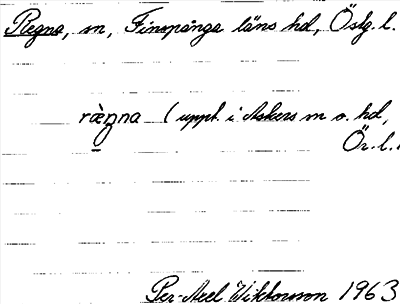 Regna, sn, Finspånga läns hd, Östg. l.
ràŋna (uppt. i Askers sn o. hd,
Ör. l.
Per-Axel Wiktorsson 1963